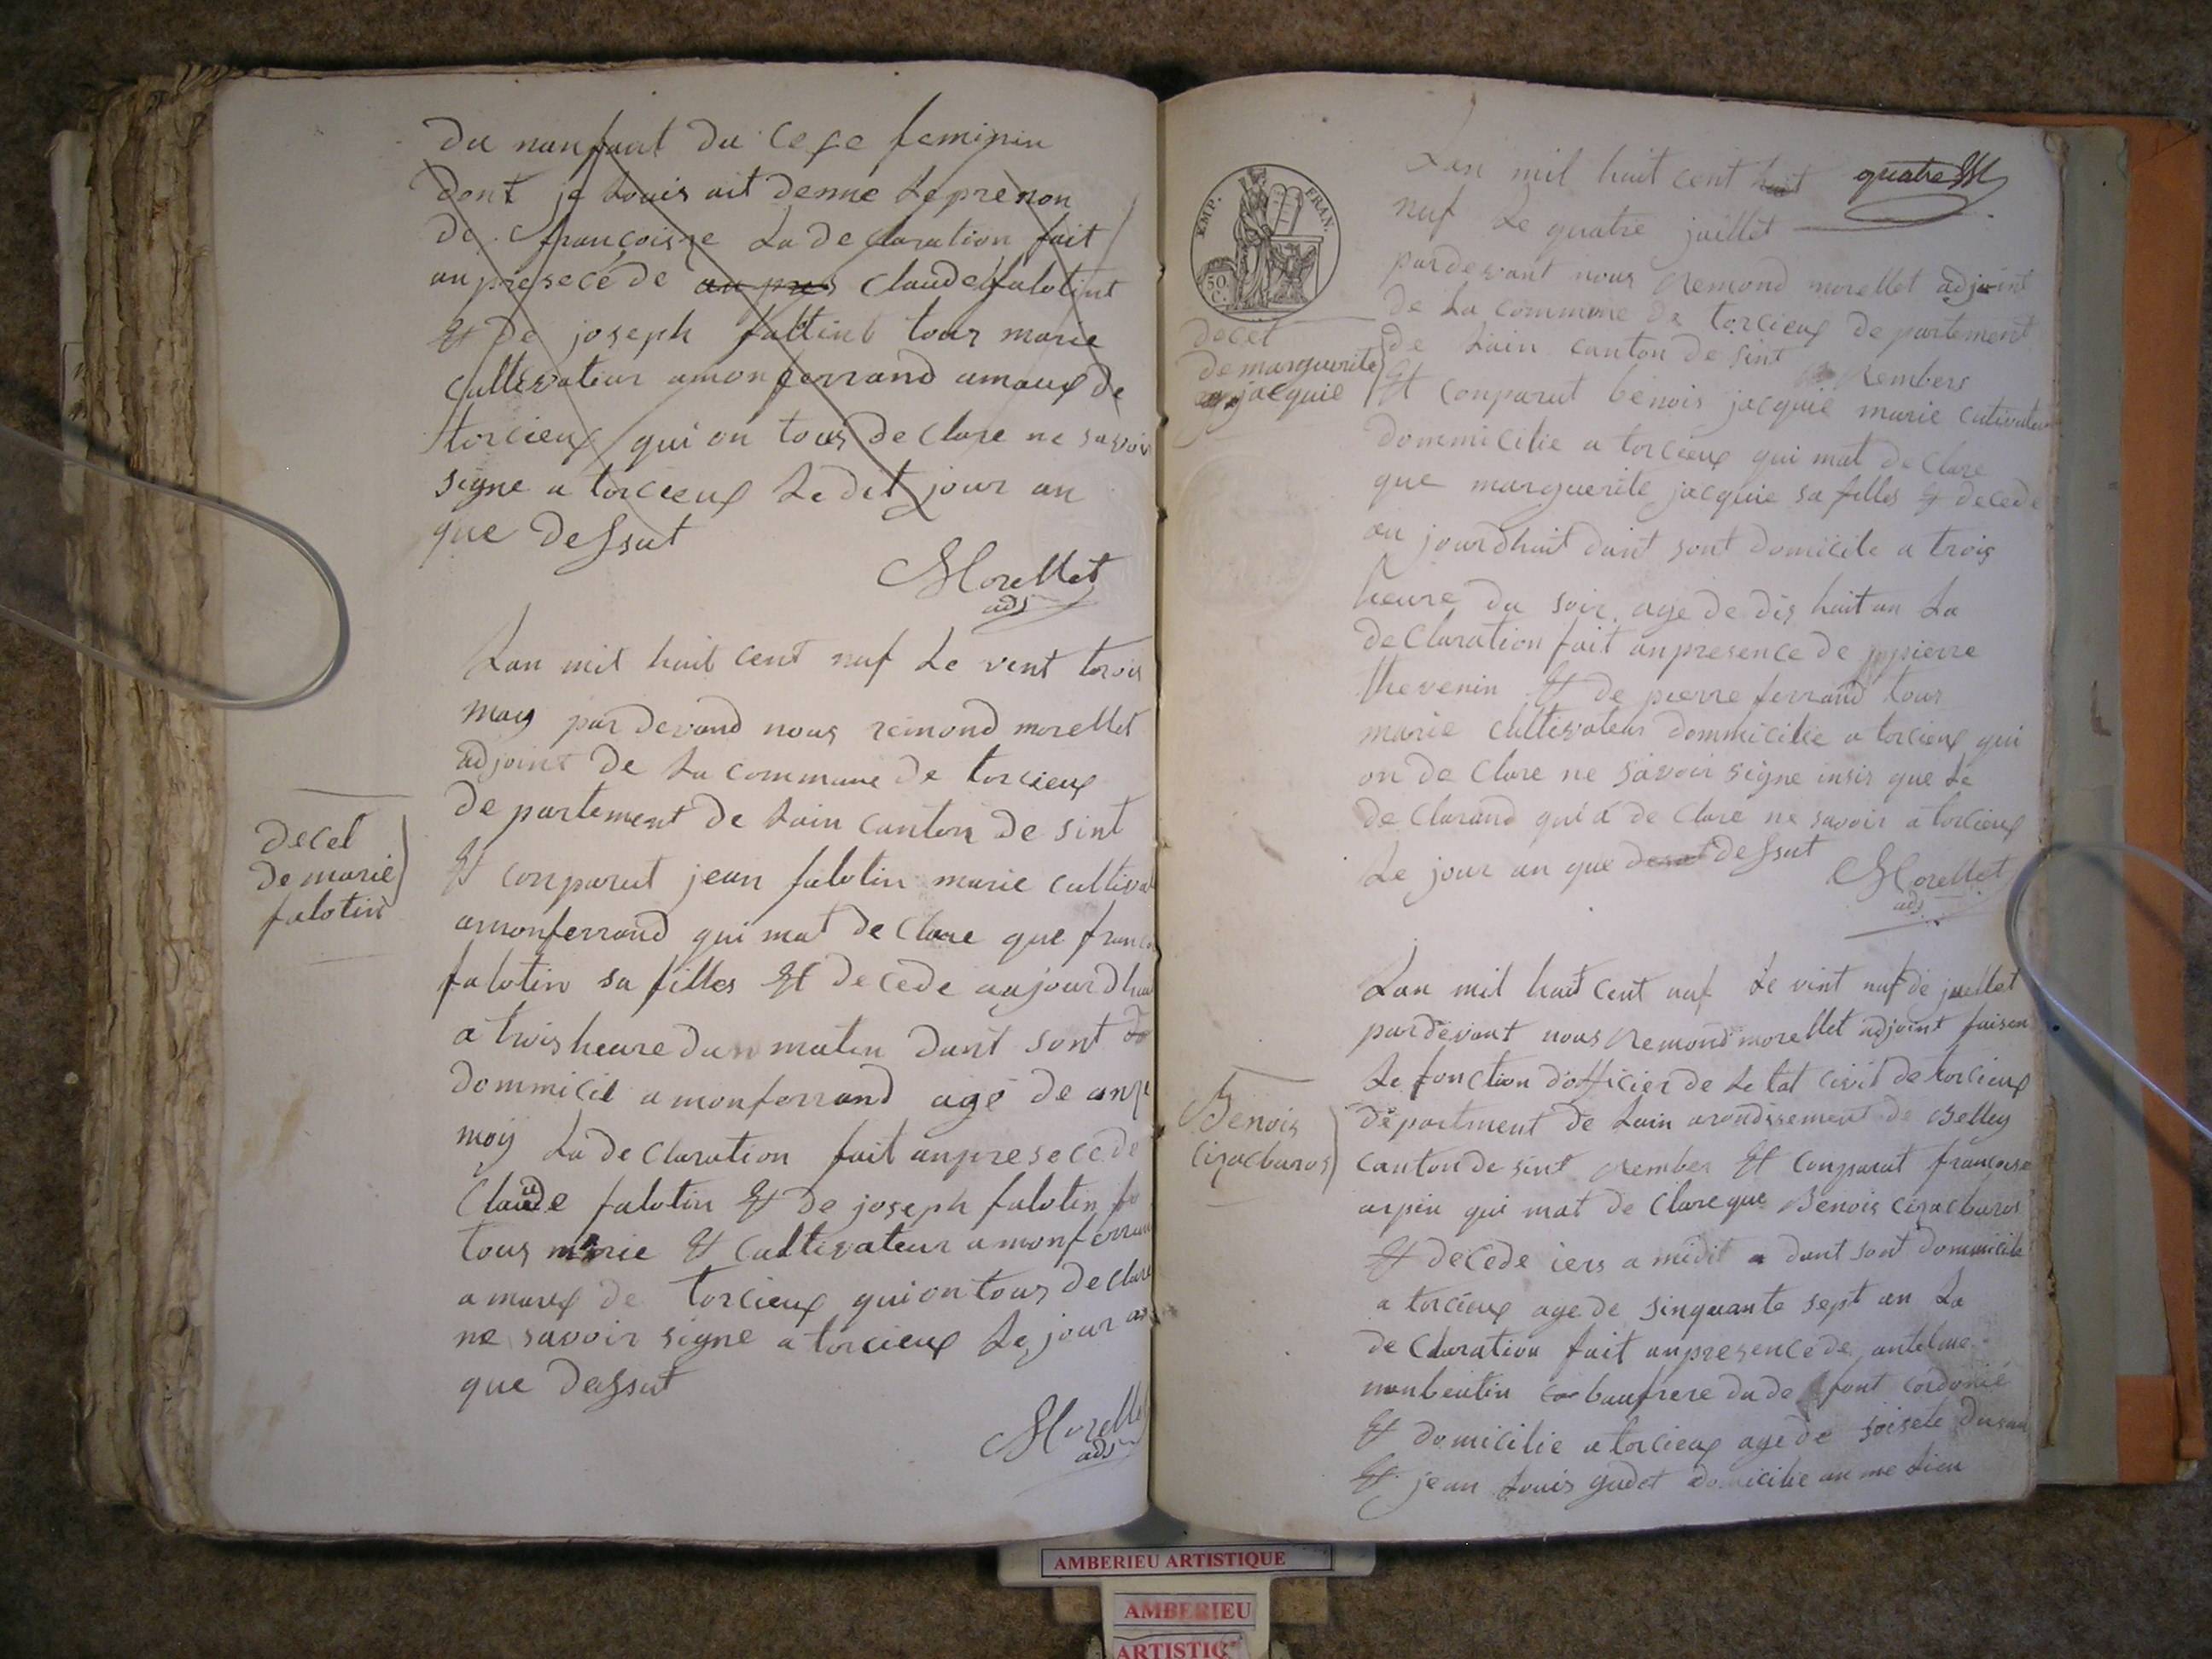 du nanfant du cexe feminin
dont je Louis ait denne Leprenon
de françoisse La declaration fait
anpresece de au pres claude falotint
Et de joseph faltint tour marie
Cultivateur amonferrand amaux de
torcieux qui on tous de clare ne savoir
signe a torcieux Le dit jour an
que dessut
Morellet
adj
Lan mil huit cent nuf Le vent torois
may par devand nous remond morellet
adjoint de La commune de torcieux
de partement de Lain canton de sint
decet
de marie
falotin
Et conparut jean falotin marie cultivat
amonferrand qui mat de clare que franc
falotin sa filles Et decede aujourdhui
a trois heure du matin dant sont do
dommicil a monferrand age de anze
moy La de claration fait anpresece de
Claude falotin Et de joseph falotin
tous marie Et Cultivateur a monferrand
a maux de torcieux qui on tous de clare
ne savoir signe a torcieux Le jour an
que dessut
Morellet
adj
quatre
EMP. FRAN.
50 C.
Lan mil huit cent huit
nuf Le quatre juillet
pardevant nous Remond morellet adjoint
de La commune de torcieux de partement
de Lain canton de sint Rembers
decet
de marguerite
jacquie
Et conparut benois jacquie marie cutivateur
dommicilie a torcieux qui mat declare
que marguerite jacquie sa filles Et decede
au jourdhuit dant sont domicile a trois
heure du soir age de dis huit an La
declaration fait anpresence de pierre
thevenin Et de pierre ferrand tour
marie cultivateur dommicilie a torcieux qui
on de clare ne savoir signe insis que Le
de clarand qui a de clare ne savoir a torcieux
Le jour an que dessut
Morellet
adj
Lan mil huit cent nuf Le vint nuf de juellet
pardevant nous Remond morellet adjoint faisen
Le fonction dofficier de Letat civil de torcieux
department de Lain arondissement de Belley
Benois
Cizacbaros
canton de sint Rember Et conparut francoise
arpin qui mat de clare que Benois cizacbaros
Et decede iers a midit a dant sont dommicile
a torcieux age de sinquante sept an La
de claration fait anpresence de antelme
monbeutin baufrere du de font cordonie
Et domicilie a torcieux age de soisete
Et jean Louis gudet domicilie an me Lieu
AMBERIEU ARTISTIQUE
AMBERIEU
ARTISTIQ